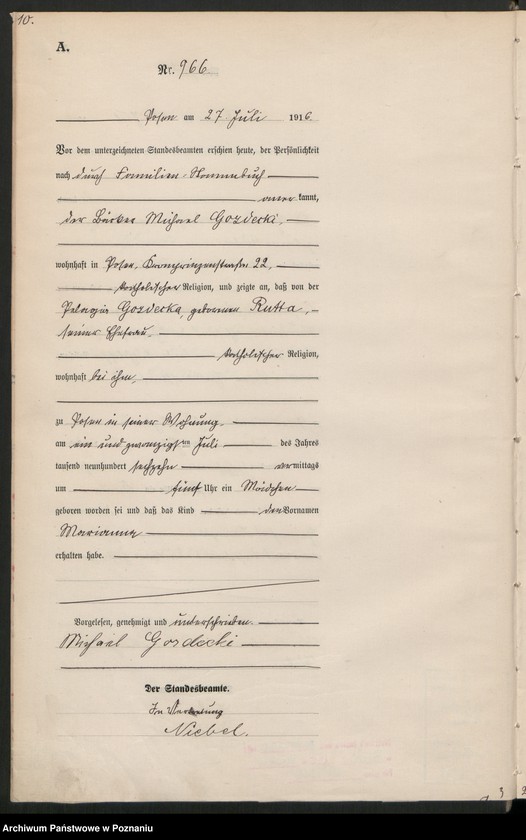 10.
A.
Nr. 966
Posen am 27 Juli 1916.
Vor dem unterzeichneten Standesbeamten erschien heute, der Persönlichkeit
nach durch Familien-Stammbuch
anerkannt,
der Bäcker Michael Gozdecki,
wohnhaft in Posen, Kronprinzenstraße 22,
katholischer Religion, und zeigte an, daß von der
Pelagia Gozdecka, geborenen Rutta,
seiner Ehefrau,
katholischer Religion,
wohnhaft bei ihm,
zu Posen in seiner Wohnung
am ein und zwanzigsten Juli des Jahres
tausend neunhundert sechzehn vormittags
um fünf Uhr ein Mädchen
geboren worden sei und daß das Kind den Vornamen
Marianna
erhalten habe.
Vorgelesen, genehmigt und unterschrieben.
Michael Gozdecki
Der Standesbeamte.
In Vertretung
Niebel.
Archiwum Państwowe w Poznaniu